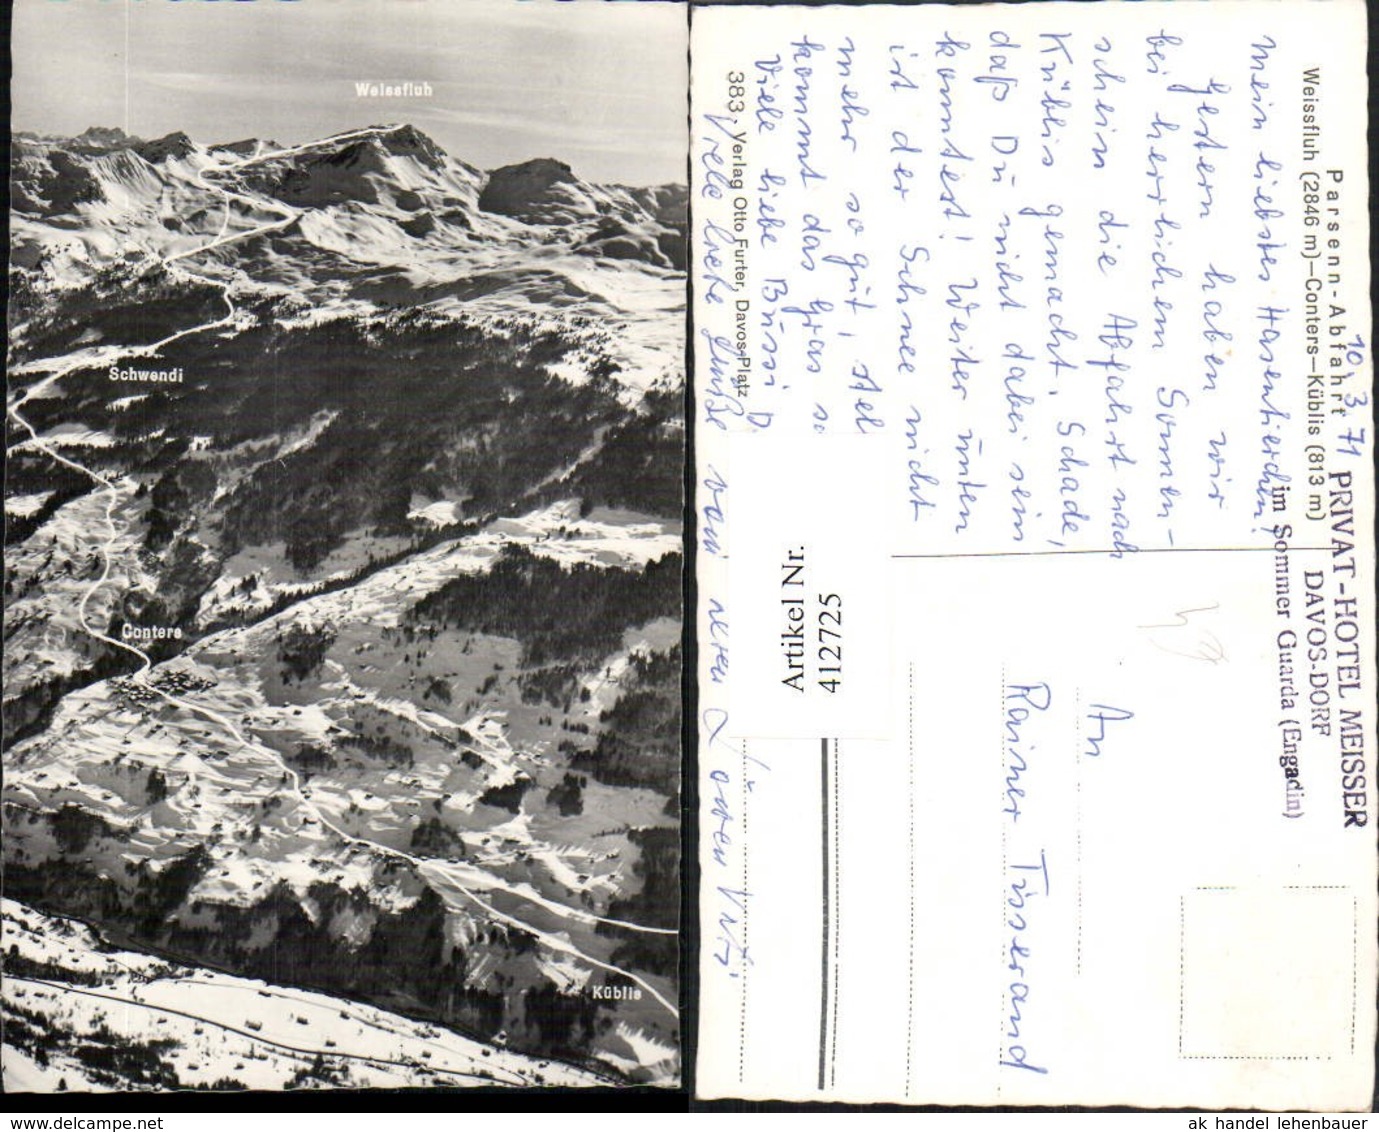 Weissfluh
Schwendi
Conters
Küblis
Parsenn-Abfahrt
Weissfluh (2846 m)–Conters–Küblis (813 m)
10. 3. 71
PRIVAT-HOTEL MEISSER
DAVOS-DORF
im Sommer Guarda (Engadin)
Mein liebstes Hasentierchen!
Gestern haben wir
bei herrlichem Sonnen-
schein die Abfahrt nach
Küblis gemacht. Schade,
daß Du nicht dabei sein
konntest! Weiter unten
ist der Schnee nicht
mehr so gut,
kommt das Gras
Viele liebe Bussi
Viele liebe Grüße von
383, Verlag Otto Furter, Davos-Platz
An
Rainer Tisserand
Artikel Nr.
412725
ak handel lehenbauer